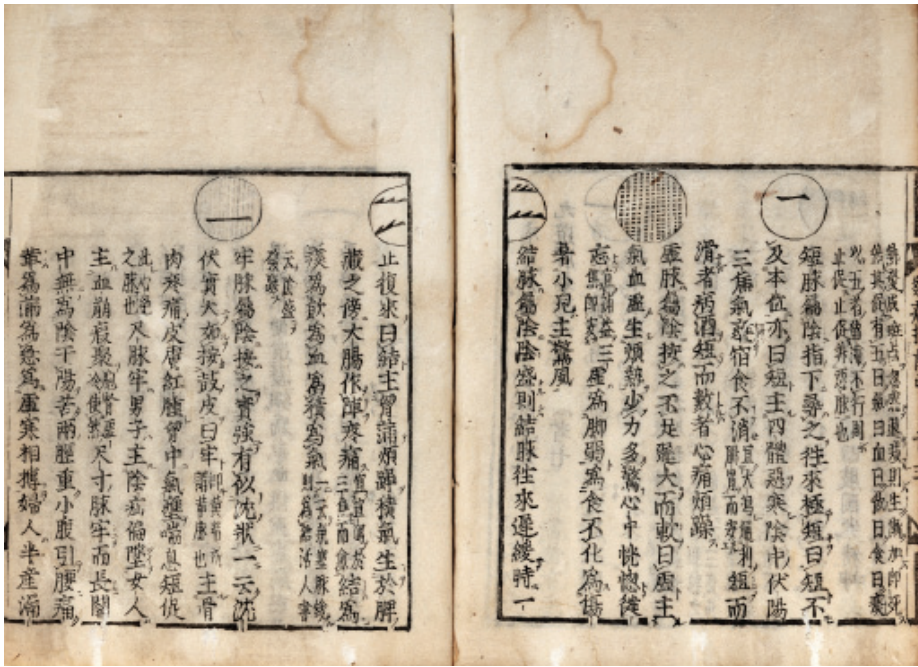 其促有五曰氣曰血曰飲曰食曰痰
一
短脉屬陰指下尋之往來極短曰短不
及本位亦曰短主四體惡寒陰中伏陽
三焦氣壅宿食不消 短而
滑者病酒短而數者心痛煩躁
虚脉屬陰按之不足遲大而軟曰虚主
氣血虚生煩熱少力多驚心中恍惚健
忘 虚為脚弱為食不化為傷
暑小兒主驚風
結脉屬陰陰盛則結脉往來遲緩時一
止復來曰結主胷滿煩躁積氣生於脾
臟之傍大腸作陣疼痛 結為
痰為飲為血為積為氣
一
牢脉屬陰按之實強有似沈狀一云沈
伏實大如按皷皮曰牢 主骨
肉疼痛皮膚紅腫胷中氣壅喘息短促
之脉也 尺脉牢男子主陰疝偏墜女人
主血崩瘕聚 尺寸脉牢而長關
中無為陰干陽苦兩脛重小腹引腰痛
革為滿為急為虚寒相搏婦人半產漏